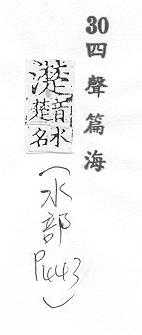 30四聲篇海
濋
音楚
水名
(水部P1443)